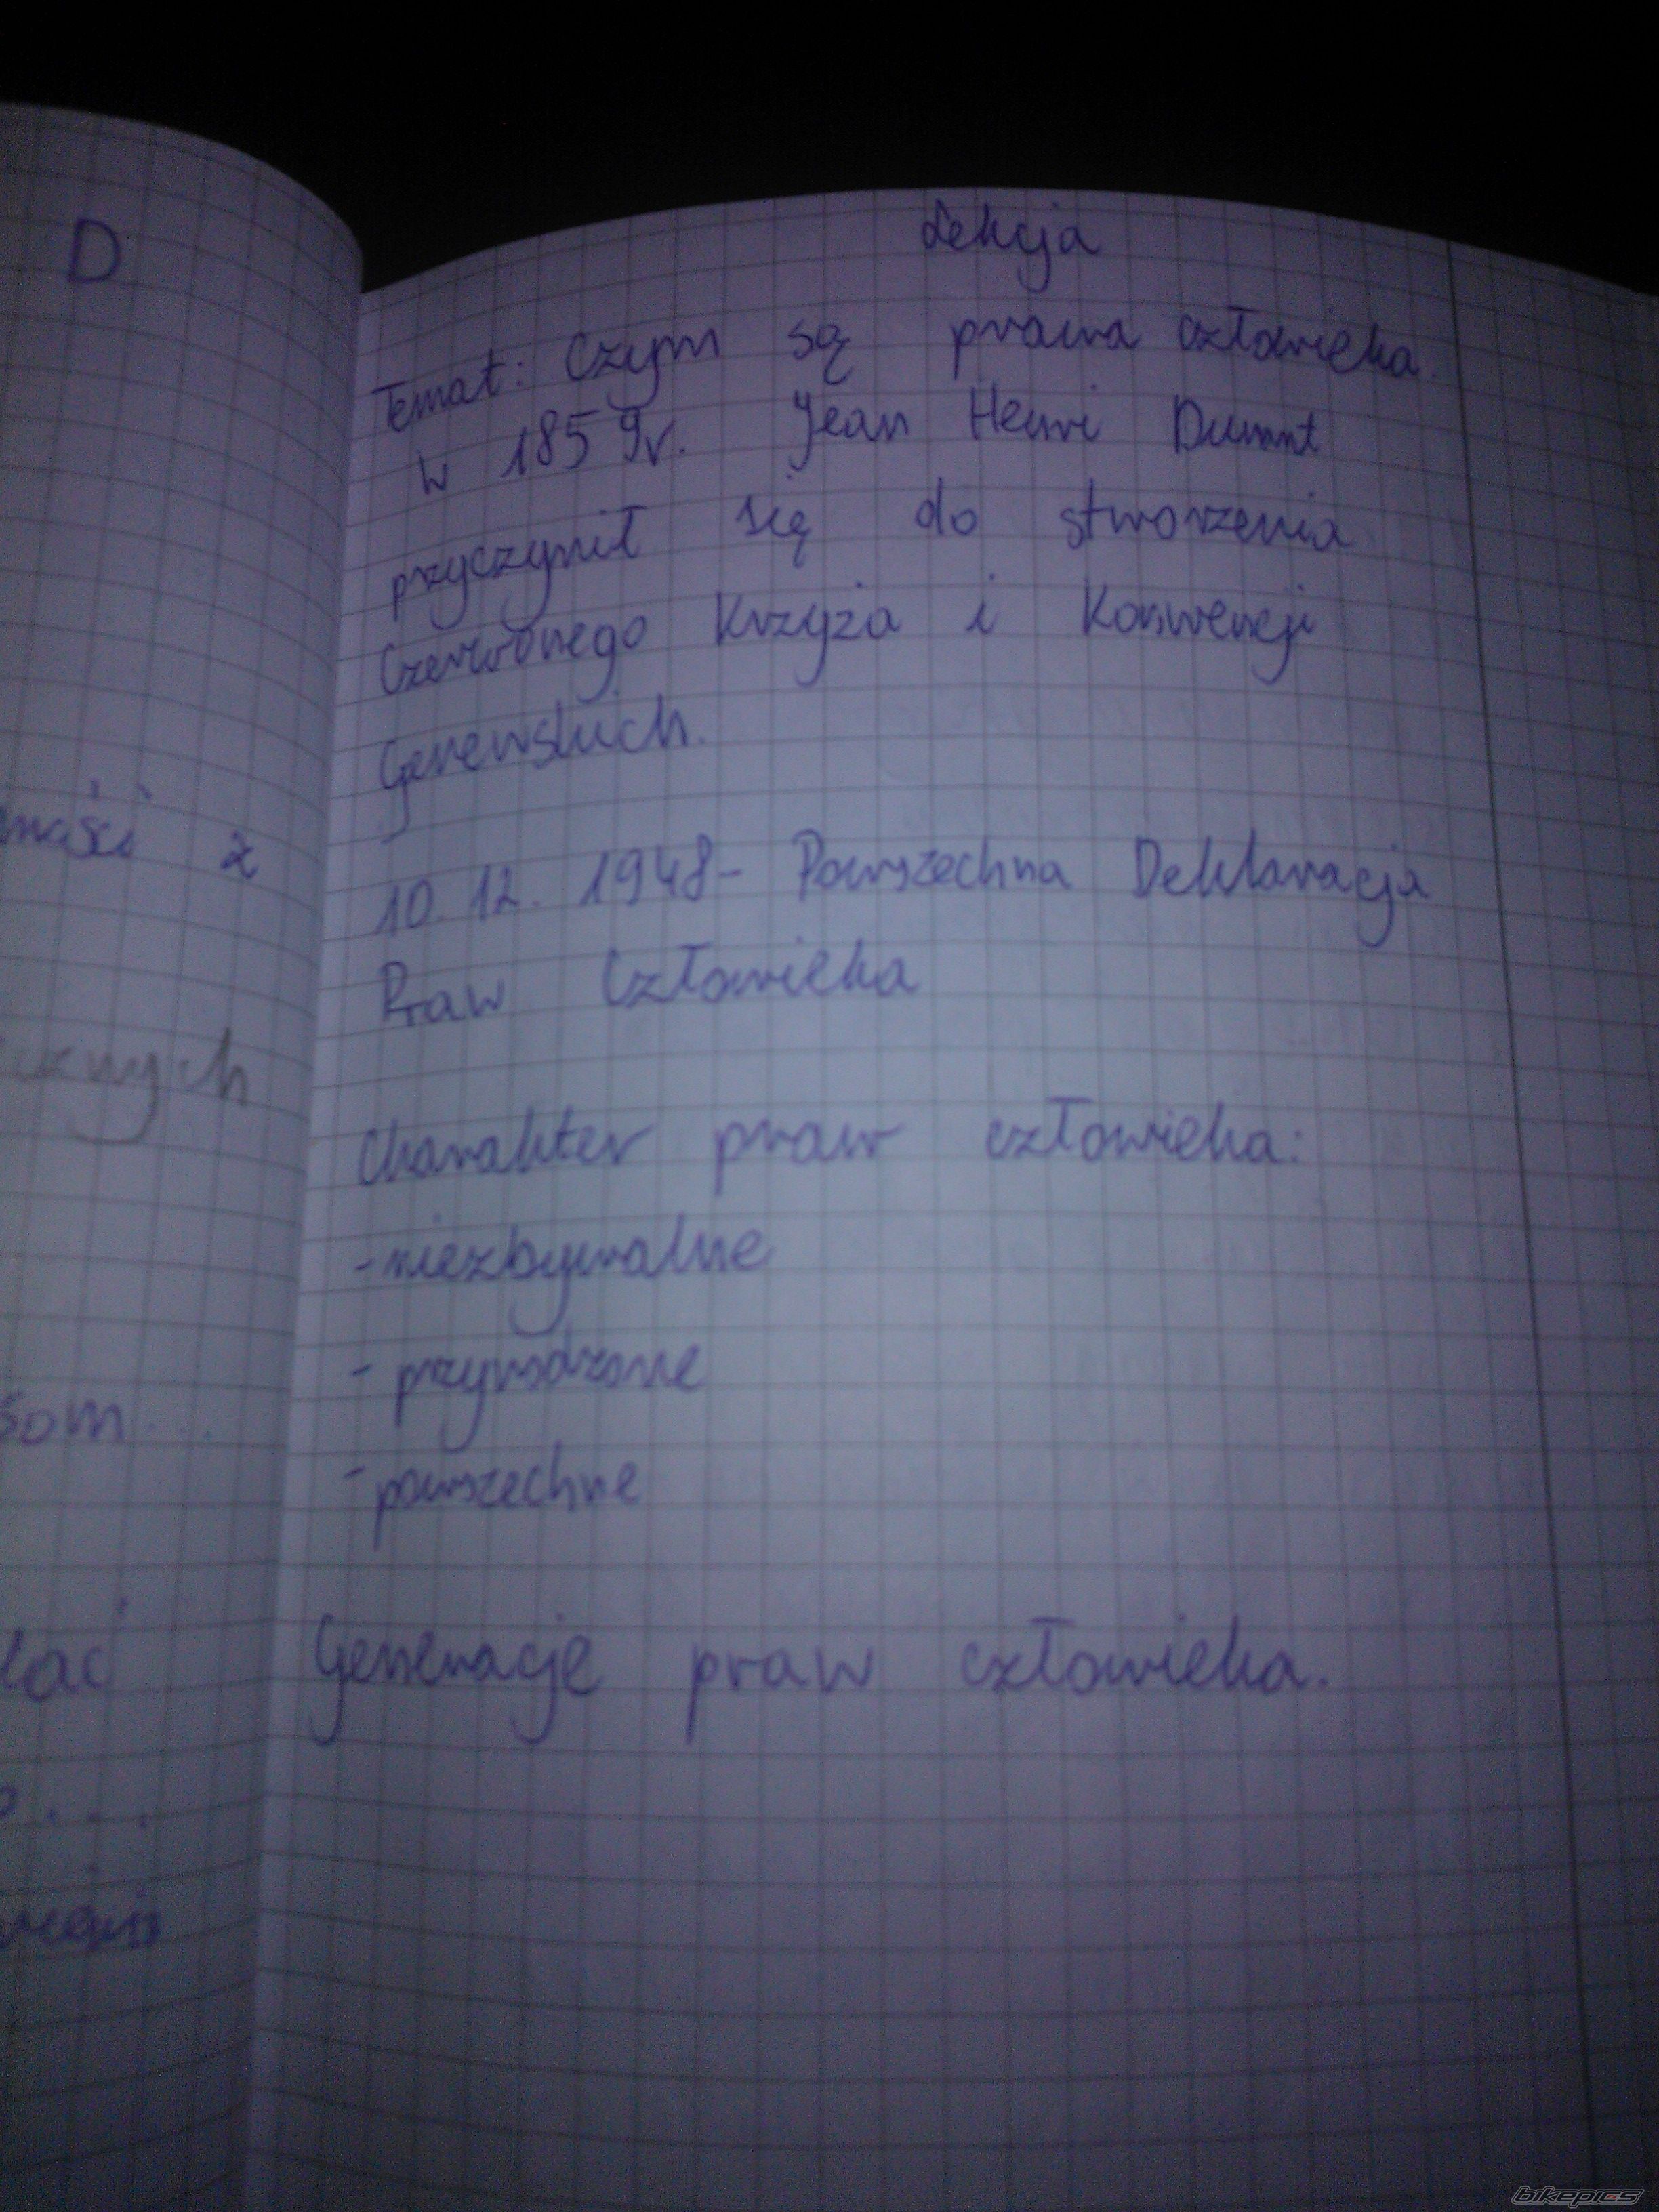 D
z
som...
Lekcja
Temat: Czym są prawa człowieka.
W 1859r. Jean Henri Dunant
przyczynił się do stworzenia
Czerwonego Krzyża i Konwencji
Genewskich.
10.12.1948- Powszechna Deklaracja
Praw Człowieka
Charakter praw człowieka:
- niezbywalne
- przyrodzone
- powszechne
Generacje praw człowieka.
bikepics